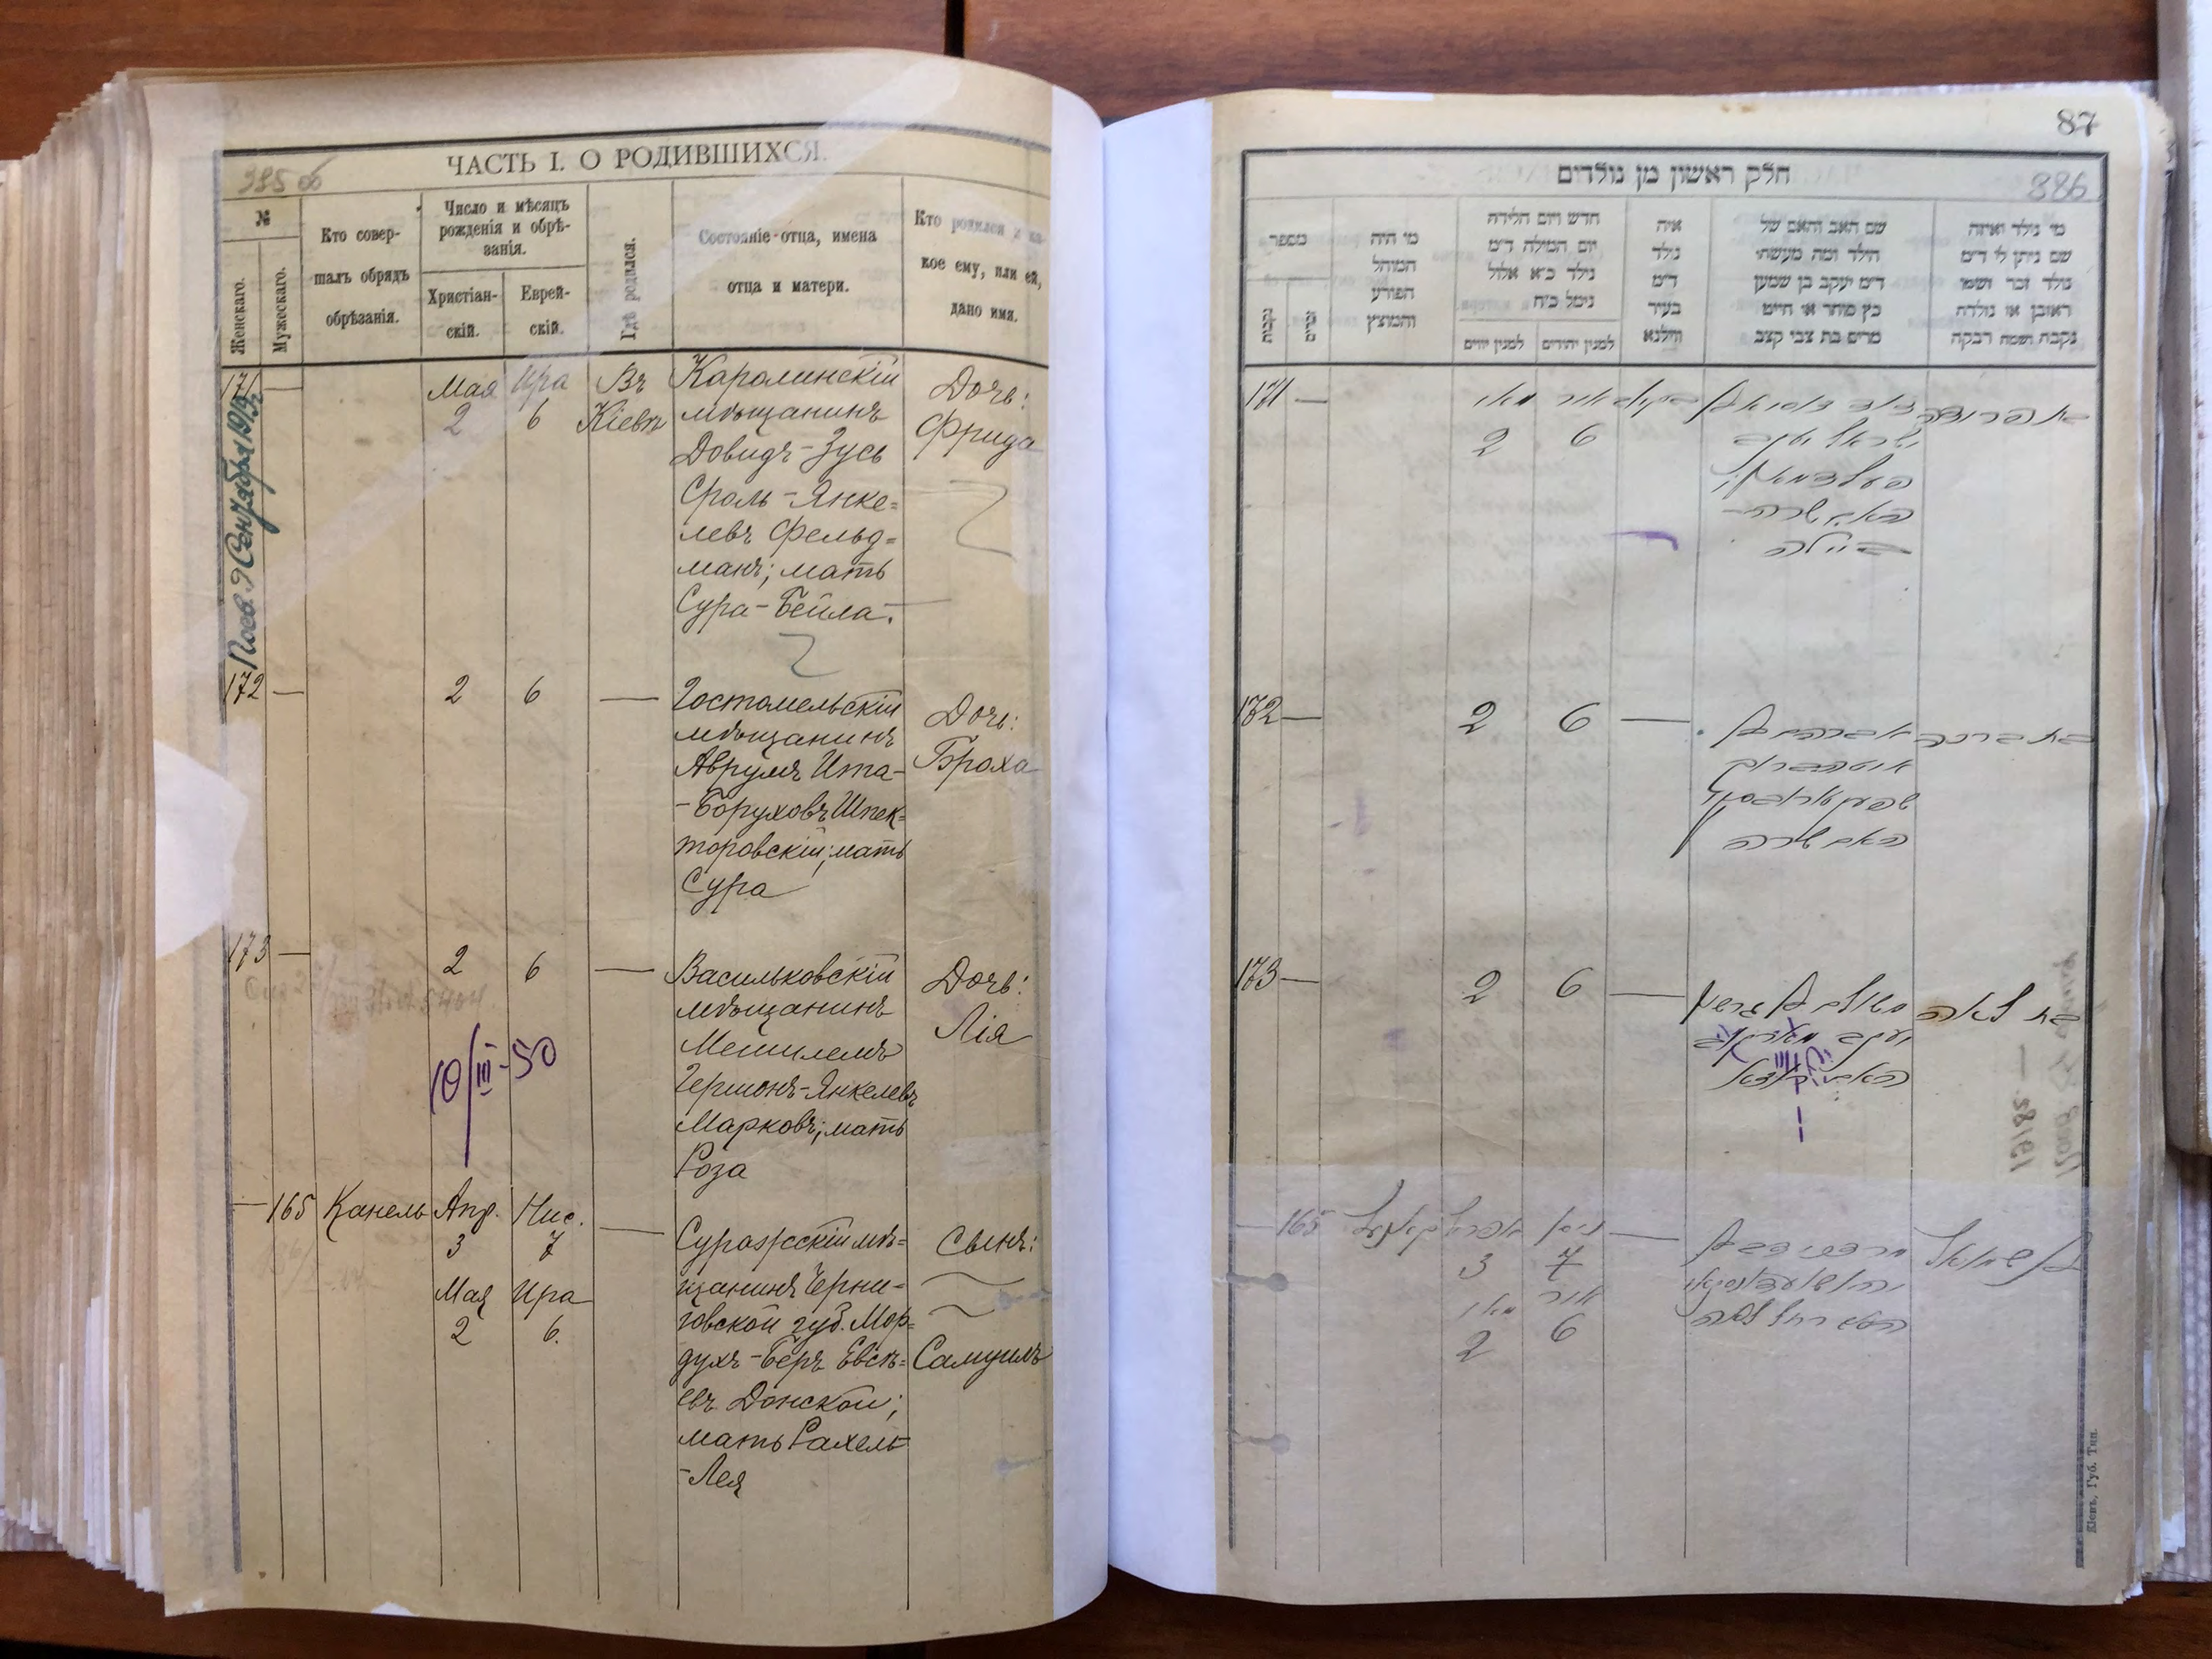 385 об
ЧАСТЬ I. О РОДИВШИХСЯ.
№
Женскаго.
Мужескаго.
Кто совер-
шалъ обрядъ
обрѣзанія.
Число и мѣсяцъ
рожденія и обрѣ-
занія.
Христіан-
скій.
Еврей-
скій.
Гдѣ родился.
Состояніе отца, имена
отца и матери.
Кто родился и ка-
кое ему, или ей,
дано имя.
171 —
Мая
2
Ира
6
Въ
Кіевѣ
Каролинскій
мѣщанинъ
Довидъ-Зусь
Сроль-Янке=
левъ Фельд=
манъ; мать
Сура-Бейла.
Дочь:
Фрида
172 —
2
6
—
Гостомельскій
мѣщанинъ
Аврумъ Ита-
-Боруховъ Шпек=
торовскій; мать
Сура
Дочь:
Броха
173 —
2
6
—
Васильковскій
мѣщанинъ
Мешилемъ
Гершонъ-Янкелевъ
Марковъ; мать
Роза
Дочь:
Лія
10/III-50
— 165
Канель
Апр.
3
Мая
2
Нис.
7
Ира
6.
—
Суражскій мѣ=
щанинъ Черни-
говской губ. Мор=
духъ-Беръ Евсѣ=
евъ Донской;
мать Рахель-
-Лея
Сынъ:
Самуилъ
87
886
חלק ראשון מן נולדים
מספר
נקבות
זכרים
מי היה
המוהל
הפורע
והמוצץ
חדש ויום הלידה
יום המילה ד״מ
נולד כ״א אלול
נימל כ״ח
למנין יוונים
למנין יהודים
איה
נולד
ד״מ
בעיר
ווילנא
שם האב והאם של
הילד ומה מעשהו
ד״מ יעקב בן שמעון
כץ סוחר או חייט
מרים בת צבי קצב
מי נולד ואיזה
שם ניתן לו ד״מ
נולד זכר ושמו
ראובן או נולדה
נקבה ושמה רבקה
171 —
מאי
2
אור
6
ישראל יעקב
פעלדמאן;
האם שרה
ביילה
172 —
2
6
—
אברהם בן
האם שרה
בת ברכה
173 —
2
6
—
משולם בן גרשון
יעקב מארקאב
בת לאה
— 165
קאנעל
אפריל
3
מאי
2
ניסן
7
אור
6
—
מרדכי בער בן
האם רחל לאה
בן שמואל
Кіевъ, Губ. Тип.